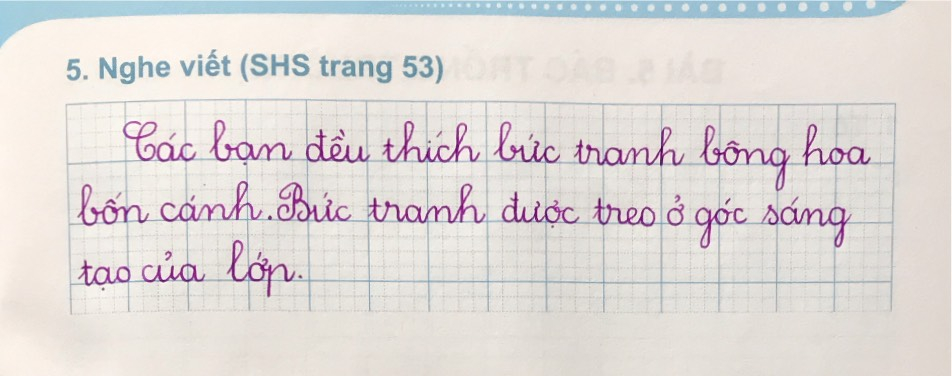 5. Nghe viết (SHS trang 53)
Các bạn đều thích bức tranh bông hoa
bốn cánh. Bức tranh được treo ở góc sáng
tạo của lớp.